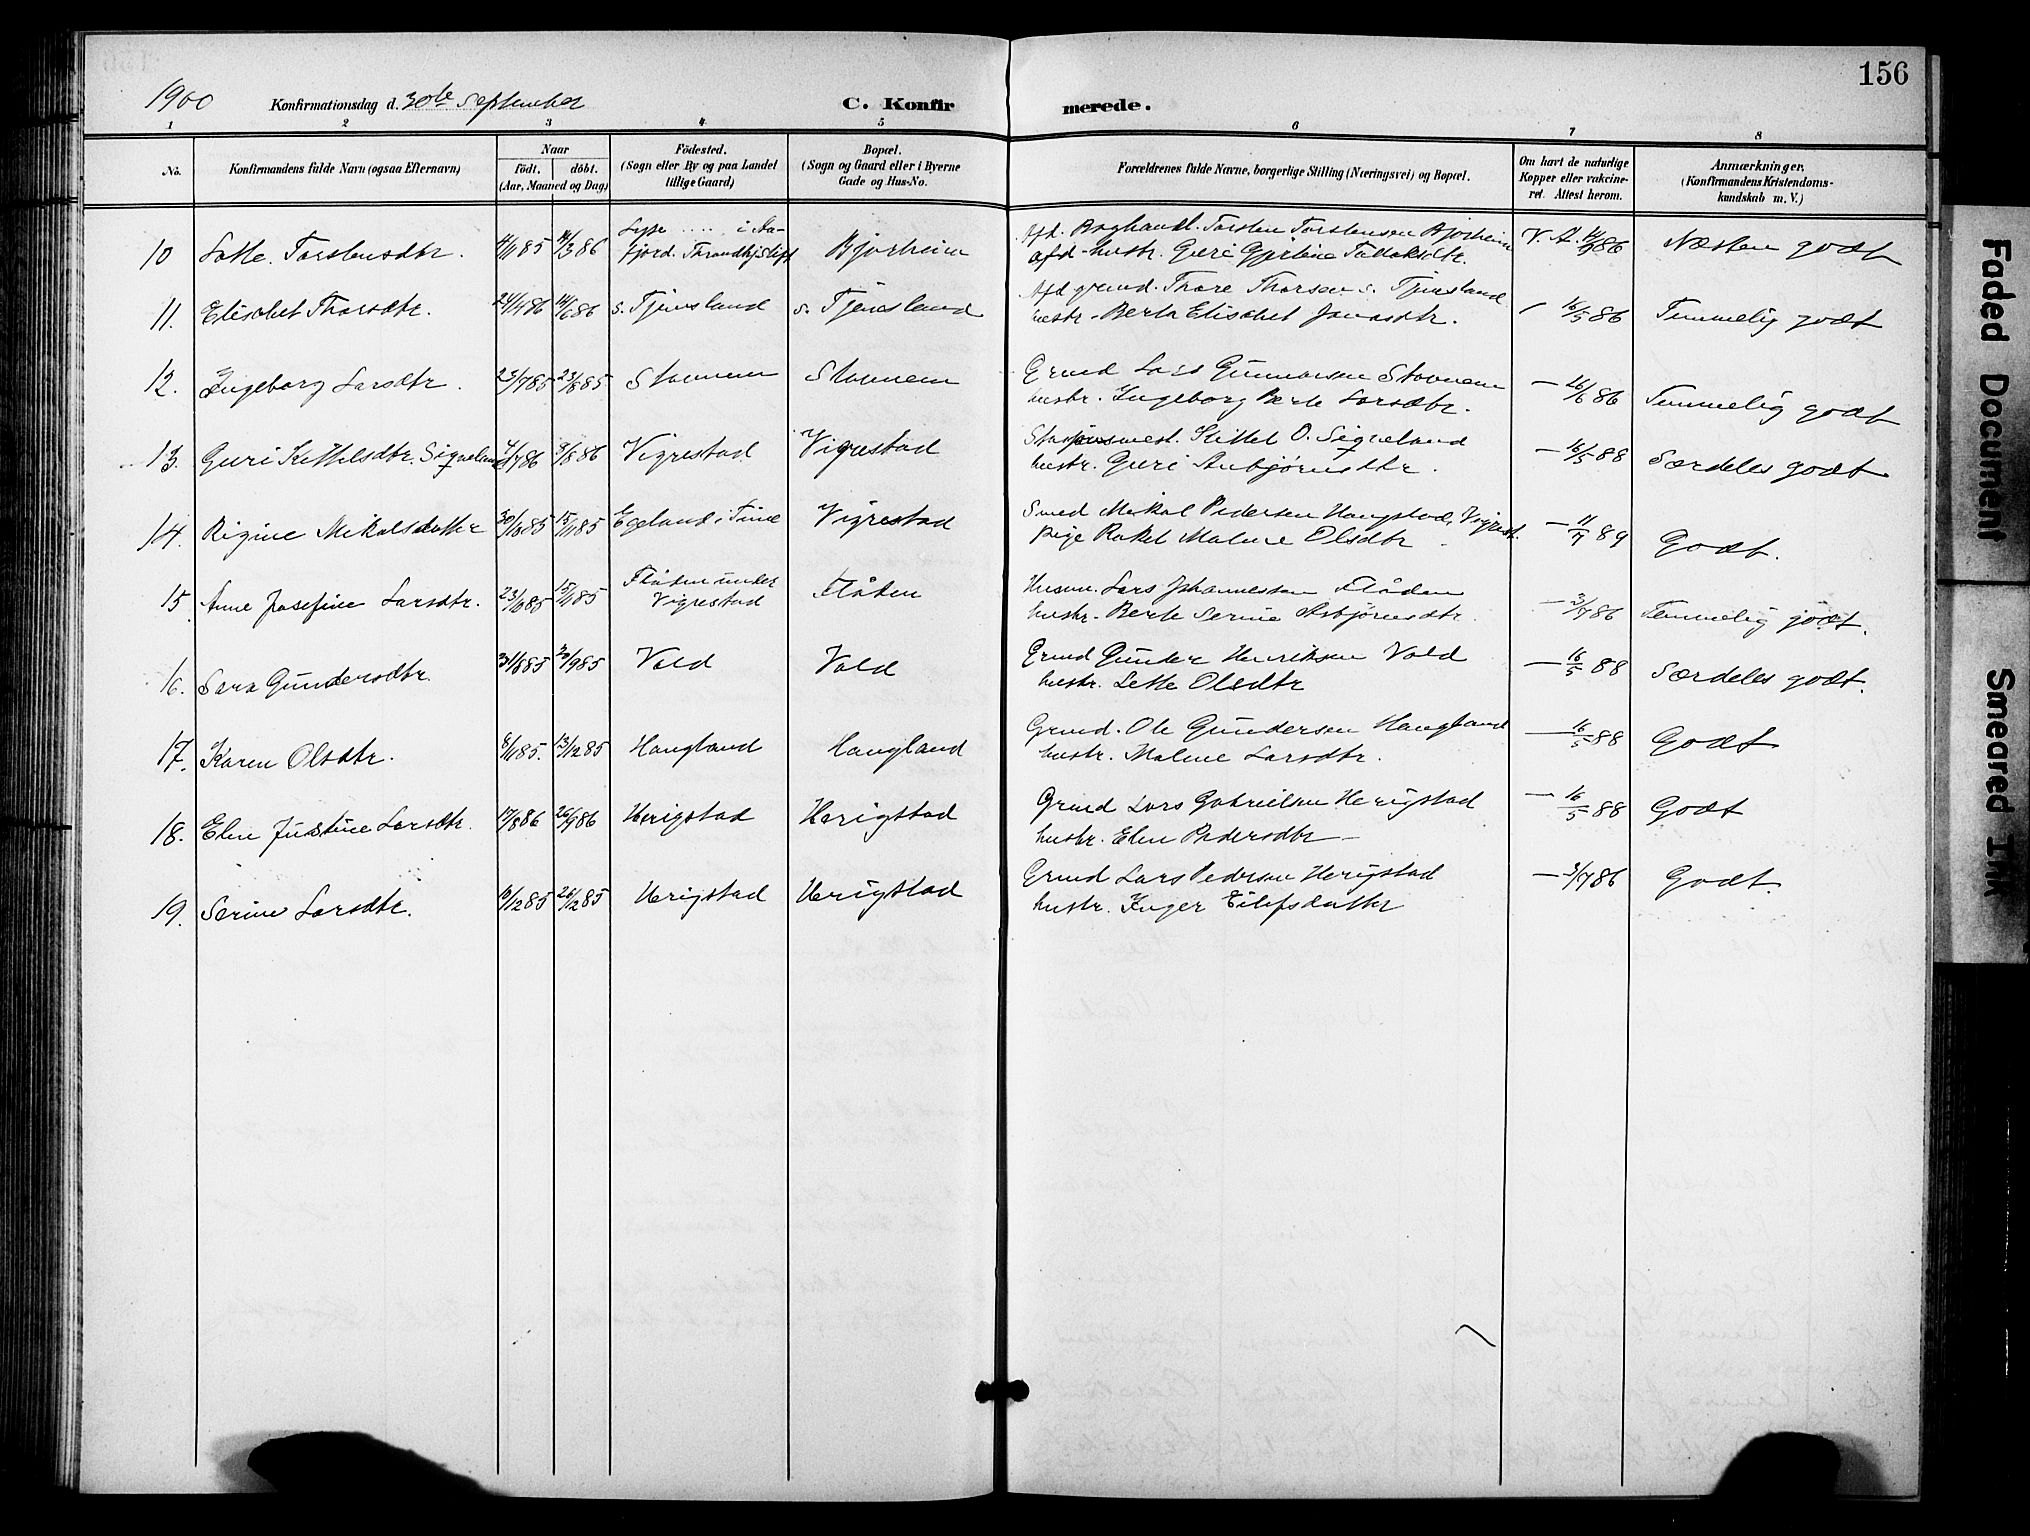 156
1900 Konfirmationsdag d. 30te September C. Konfirmerede.
1 2 3 4 5 6 7 8
No. Konfirmandens fulde Navn (ogsaa Efternavn) Naar födt. döbt. (Aar, Maaned og Dag) Födested. (Sogn eller By og paa Landet tillige Gaard) Bopæl. (Sogn og Gaard eller i Byerne Gade og Hus-No. Forældrenes fulde Navne, borgerlige Stilling (Næringsvei) og Bopæl. Om havt de naturlige Kopper eller vakcineret. Attest herom. Anmærkninger, (Konfirmandens Kristendomskundskab m. V.)
10 Torstensdtr. 4/11 85 14/3 86 i Aafjord. Bjorheim Afd. Torsten Torstensen Bjorheim afd hustr. Guri V. A. 86 Næsten godt
11. Elisabet Thorsdtr. 24/4 86 14/6 86 s. Tjensland s. Tjensland Afd grmd. Thore Thorsen s. Tjensland hustr. Berta Elisabet Jonasdtr. 16/5 86 Temmelig godt
12. Ingeborg Larsdtr. 23/7 85 23/8 85 Stavnem Stavnem Grmd Lars Gunnarsen Stavnem hustr. Ingeborg Berte Larsdtr. — 26/6 86 Temmelig godt
13. Guri Kittelsdtr. Signeland 4/7 86 8/8 86 Vigrestad Vigrestad Stasjonsmest. Kittel O. Signeland hustr. Guri Anbjørnsdtr. — 16/5 88 Særdeles godt
14. Rigine Mikalsdatter 30/10 85 15/11 85 Egeland i Time Vigrestad Smed Mikal Pedersen Haugstad, Vigrest. Pige Rakel Malene Olsdtr — 11/9 89 Godt.
15. Anne Josefine Larsdtr. 23/10 85 15/11 85 Flåten under Vigrestad Flåten Husm. Lars Johannessen Flåden hustr. Berte Serine Asbjørnsdtr. — 3/7 86 Temmelig godt.
16. Sara Gundersdtr. 31/8 85 20/9 85 Vold Vold Grmd Gunder Henriksen Vold hustr. Lette Olsdtr — 16/5 88 Særdeles godt.
17. Karen Olsdtr. 8/11 85. 13/12 85 Haugland Haugland Grmd. Ole Gundersen Haugland hustr. Malene Larsdtr. — 16/5 88 Godt
18. Elen Justine Larsdtr. 17/8 86 26/9 86 Herigstad Herigstad Grmd Lars Gabrielsen Herigstad hustr. Elen Pedersdtr — 16/5 88 Godt
19. Serine Larsdtr. 10/12 85 26/12 85 Herigstad Herigstad Grmd Lars Pedersen Herigstad hustr. Inger Eilefsdatter — 3/7 86 Godt.
Faded Document
Smeared Ink